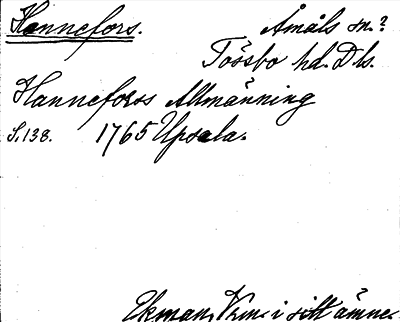 Hannefors. Åmåls sn.?
Tössbo hd. Dls.
Hanneforss Allmänning
S. 138. 1765 Upsala.
Ekman, Vms i sitt ämne.